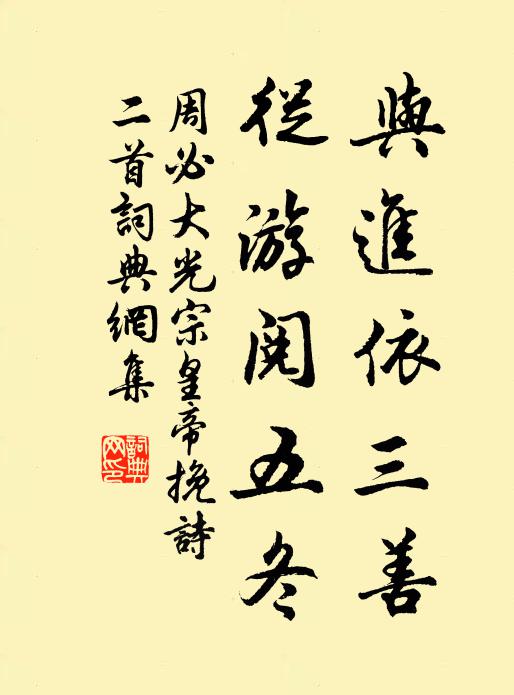 與進依三善
從游閱五冬
周必大光宗皇帝挽詩
二首詞典網集
詞典網印